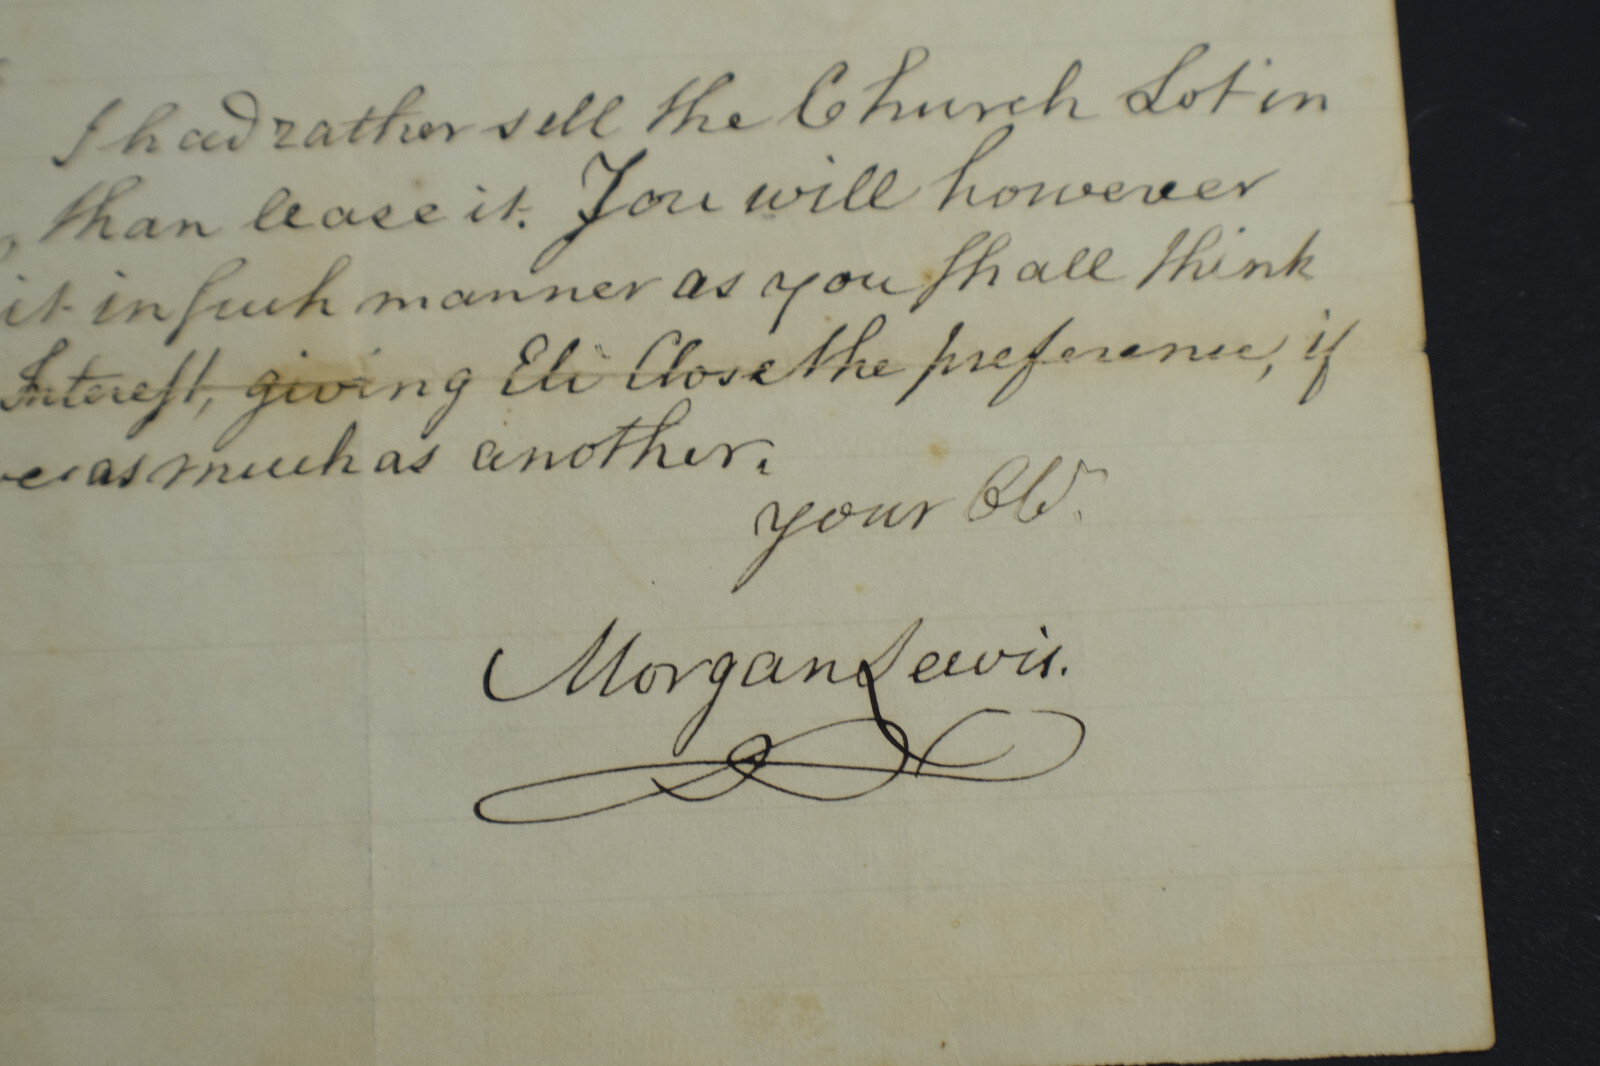 I had rather sell the Church Lot in
, than lease it. You will however
it in such manner as you shall think
Interest, giving Eli Close the preference, if
as much as another.
your Ob.
Morgan Lewis.